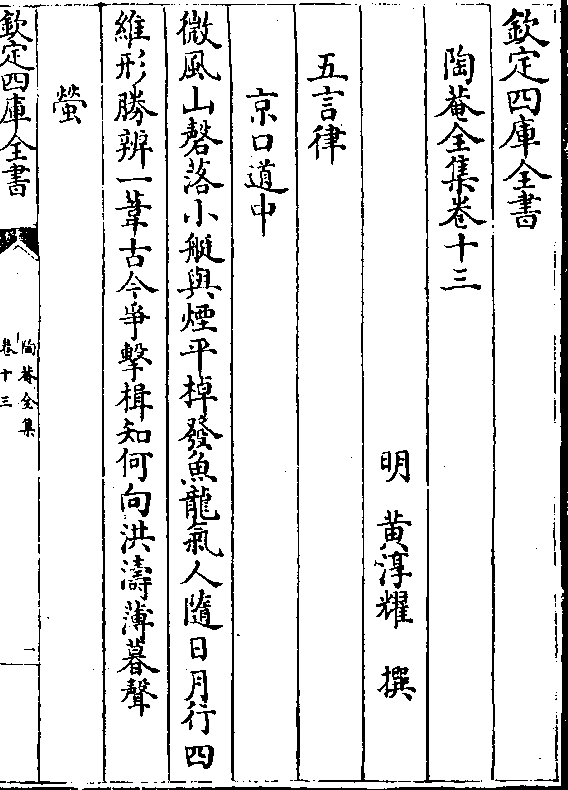 欽定四庫全書
陶菴全集卷十三
明 黃淳耀 撰
五言律
京口道中
微風山磬落小艇與煙平掉發魚龍氣人隨日月行四
維形勝辨一葦古今爭擊楫知何向洪濤薄暮聲
螢
欽定四庫全書
陶菴全集
卷十三
一